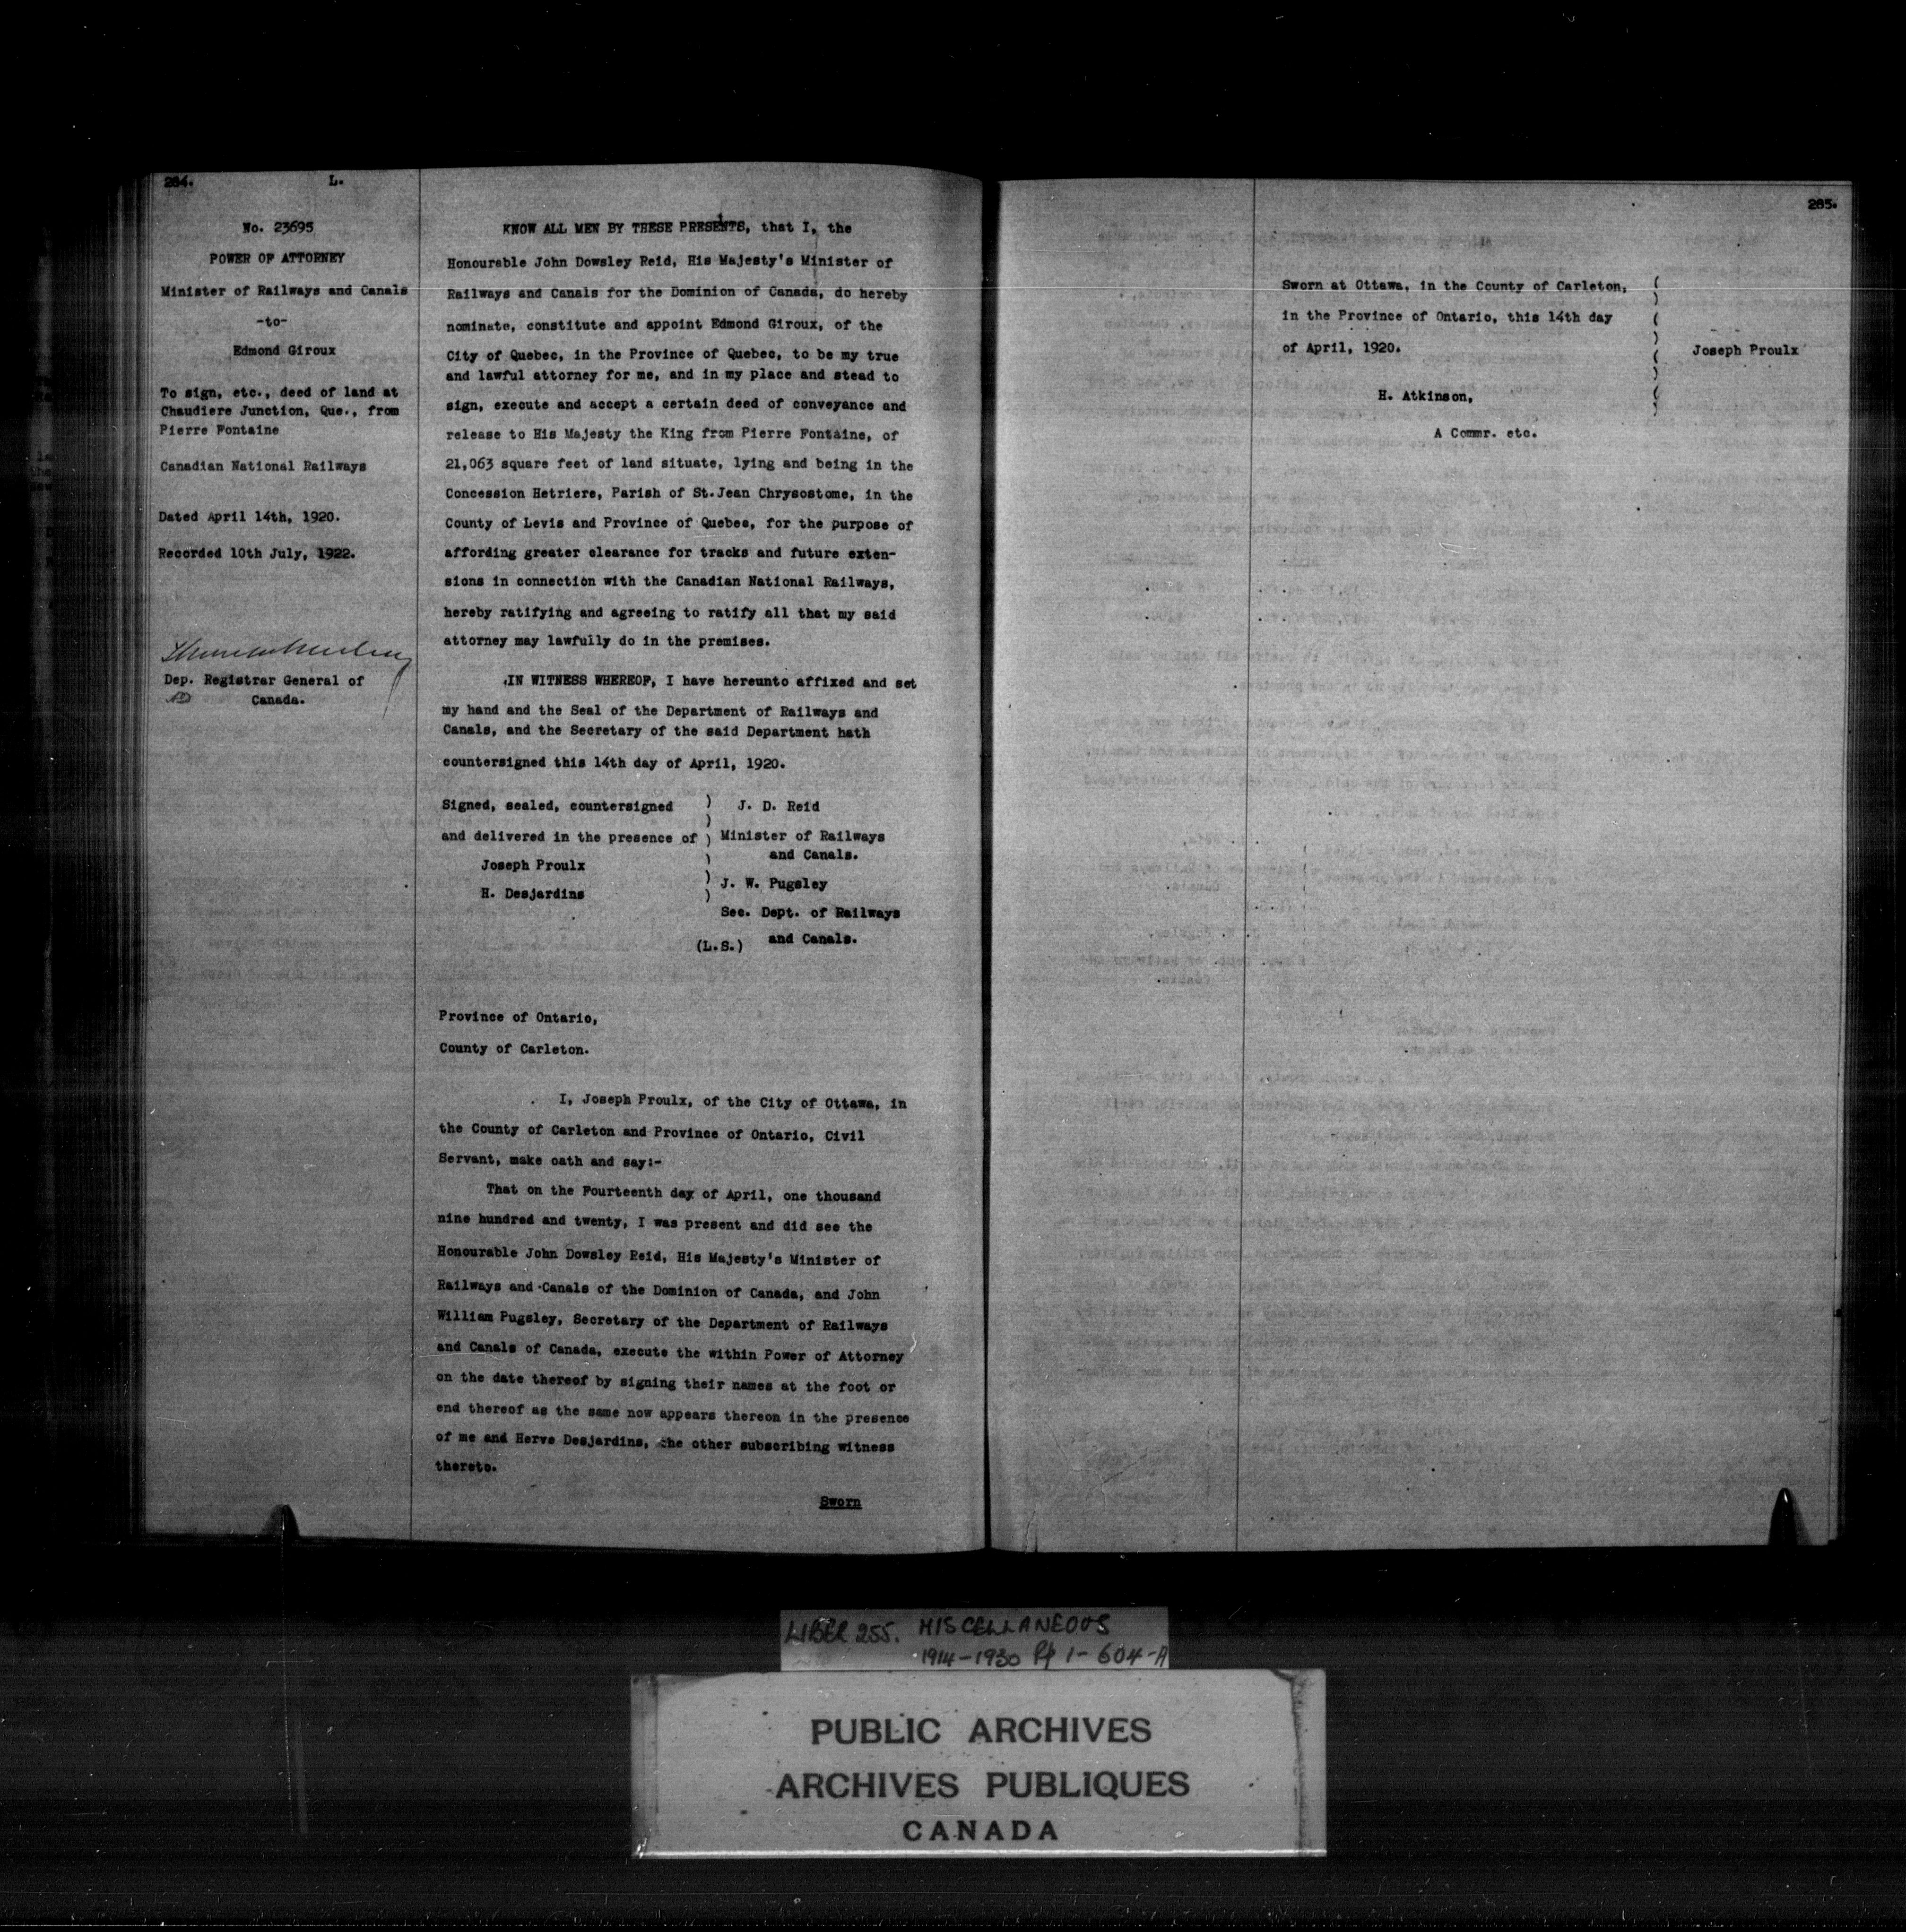 284.
L.
No. 23695
POWER OF ATTORNEY
Minister of Railways and Canals
-to-
Edmond Giroux
To sign, etc., deed of land at
Chaudiere Junction, Que., from
Pierre Fontaine
Canadian National Railways
Dated April 14th, 1920.
Recorded 10th July, 1922.
Dep. Registrar General of
Canada.
KNOW ALL MEN BY THESE PRESENTS, that I, the
Honourable John Dowsley Reid, His Majesty's Minister of
Railways and Canals for the Dominion of Canada, do hereby
nominate, constitute and appoint Edmond Giroux, of the
City of Quebec, in the Province of Quebec, to be my true
and lawful attorney for me, and in my place and stead to
sign, execute and accept a certain deed of conveyance and
release to His Majesty the King from Pierre Fontaine, of
21,063 square feet of land situate, lying and being in the
Concession Hetriere, Parish of St.Jean Chrysostome, in the
County of Levis and Province of Quebec, for the purpose of
affording greater clearance for tracks and future exten-
sions in connection with the Canadian National Railways,
hereby ratifying and agreeing to ratify all that my said
attorney may lawfully do in the premises.
IN WITNESS WHEREOF, I have hereunto affixed and set
my hand and the Seal of the Department of Railways and
Canals, and the Secretary of the said Department hath
countersigned this 14th day of April, 1920.
Signed, sealed, countersigned ) J. D. Reid
)
and delivered in the presence of ) Minister of Railways
and Canals.
Joseph Proulx )
) J. W. Pugsley
H. Desjardins )
Sec. Dept. of Railways
(L.S.) and Canals.
Province of Ontario,
County of Carleton.
I, Joseph Proulx, of the City of Ottawa, in
the County of Carleton and Province of Ontario, Civil
Servant, make oath and say:-
That on the Fourteenth day of April, one thousand
nine hundred and twenty, I was present and did see the
Honourable John Dowsley Reid, His Majesty's Minister of
Railways and Canals of the Dominion of Canada, and John
William Pugsley, Secretary of the Department of Railways
and Canals of Canada, execute the within Power of Attorney
on the date thereof by signing their names at the foot or
end thereof as the same now appears thereon in the presence
of me and Herve Desjardins, the other subscribing witness
thereto.
Sworn
285.
Sworn at Ottawa, in the County of Carleton, (
)
in the Province of Ontario, this 14th day (
)
of April, 1920. ( Joseph Proulx
)
H. Atkinson, (
)
A Commr. etc.
LIBER 255. MISCELLANEOUS
1914-1930 Pp 1-604-A
PUBLIC ARCHIVES
ARCHIVES PUBLIQUES
CANADA